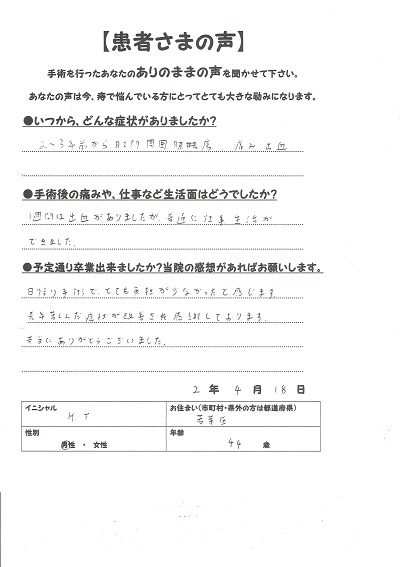 【患者さまの声】
手術を行ったあなたのありのままの声を聞かせて下さい。
あなたの声は今、痔で悩んでいる方にとってとても大きな励みになります。
●いつから、どんな症状がありましたか?
2〜3年前から肛門周囲 痛み 出血
●手術後の痛みや、仕事など生活面はどうでしたか?
1週間は出血がありましたが、普通に仕事生活が
できました。
●予定通り卒業出来ましたか?当院の感想があればお願いします。
日帰り手術で、とても負担が少なかったと感じます
長年苦しんだ症状が改善され感謝しております。
本当にありがとうございました。
2 年 4 月 18 日
イニシャル お住まい(市町村・県外の方は都道府県)
H.T 若葉区
性別 年齢
男性 ・ 女性 44 歳